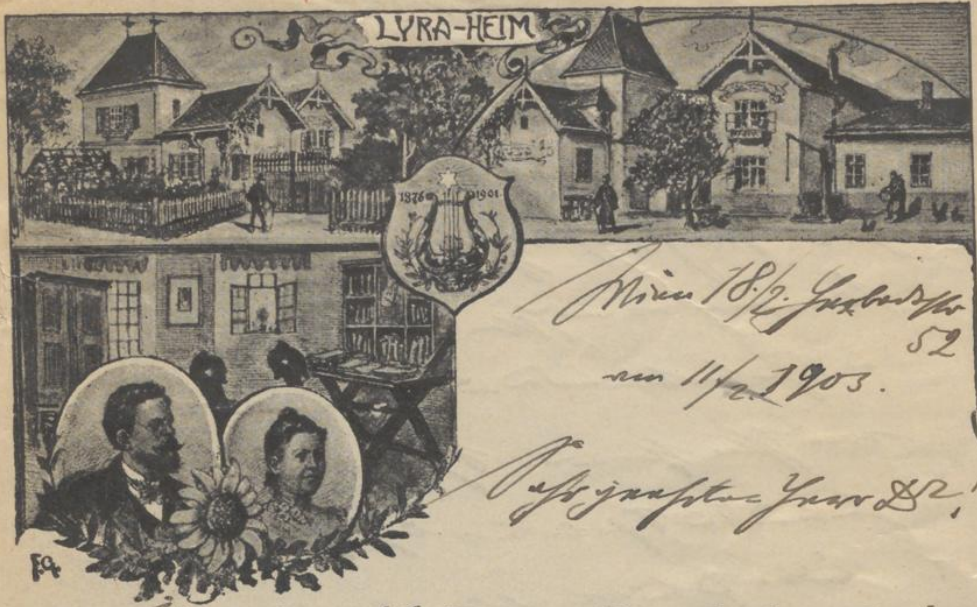 LYRA-HEIM
1876 1901
Wien 18/2. Herbeckstr
52
am 11/2. 1903.
Sehr geehrter Herr Dr!